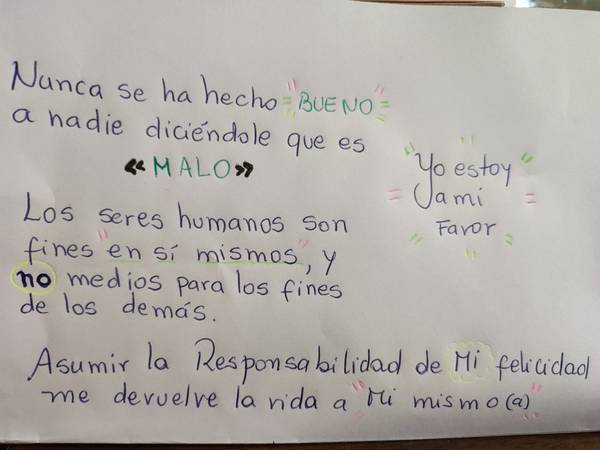 Nunca se ha hecho "BUENO"
a nadie diciéndole que es
«MALO»
Yo estoy
a mi
Favor
Los seres humanos son
fines "en sí mismos", y
no medios para los fines
de los demás.
Asumir la Responsabilidad de Mi felicidad
me devuelve la vida a "Mi mismo(a)"